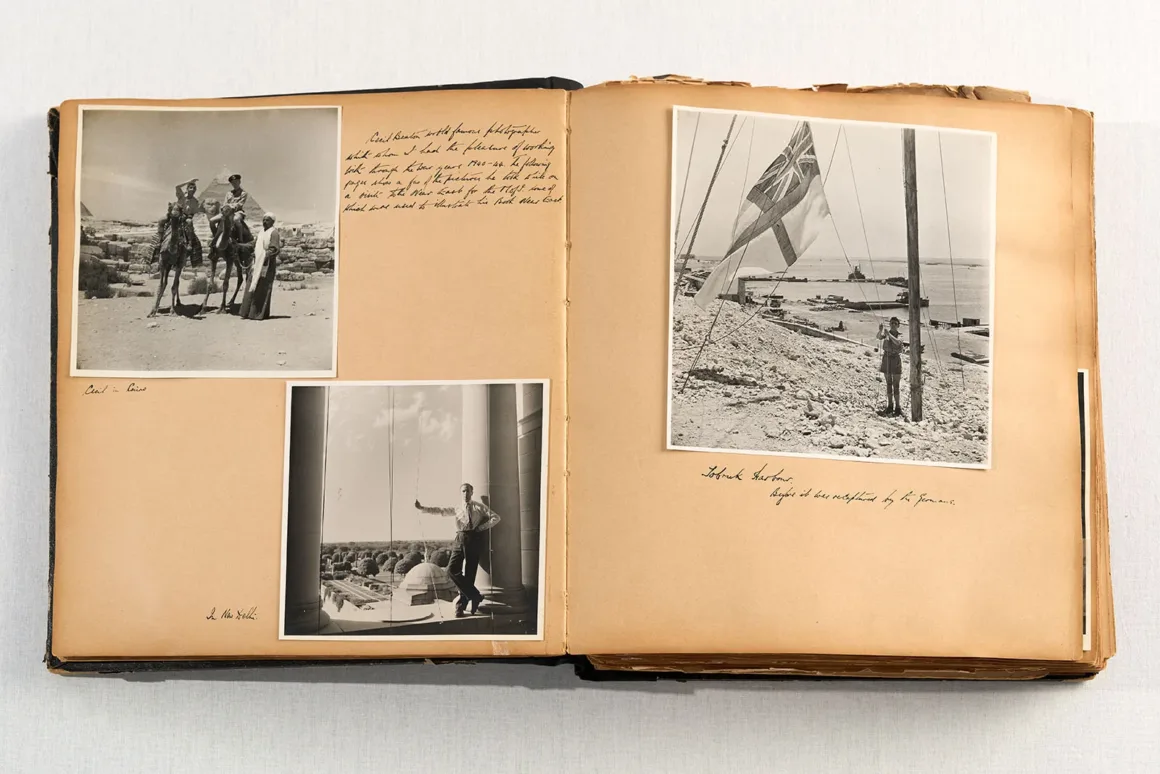 Cecil Beaton world famous photographer
with whom I had the pleasure of working
with through the war years 1940-44. The following
pages show a few of the pictures he took while on
a visit to the Near East for the M.O.I. some of
which was used to illustrate his Book Near East
Cecil in Cairo
In New Delhi.
Tobruk Harbour.
Before it was recaptured by the Germans.